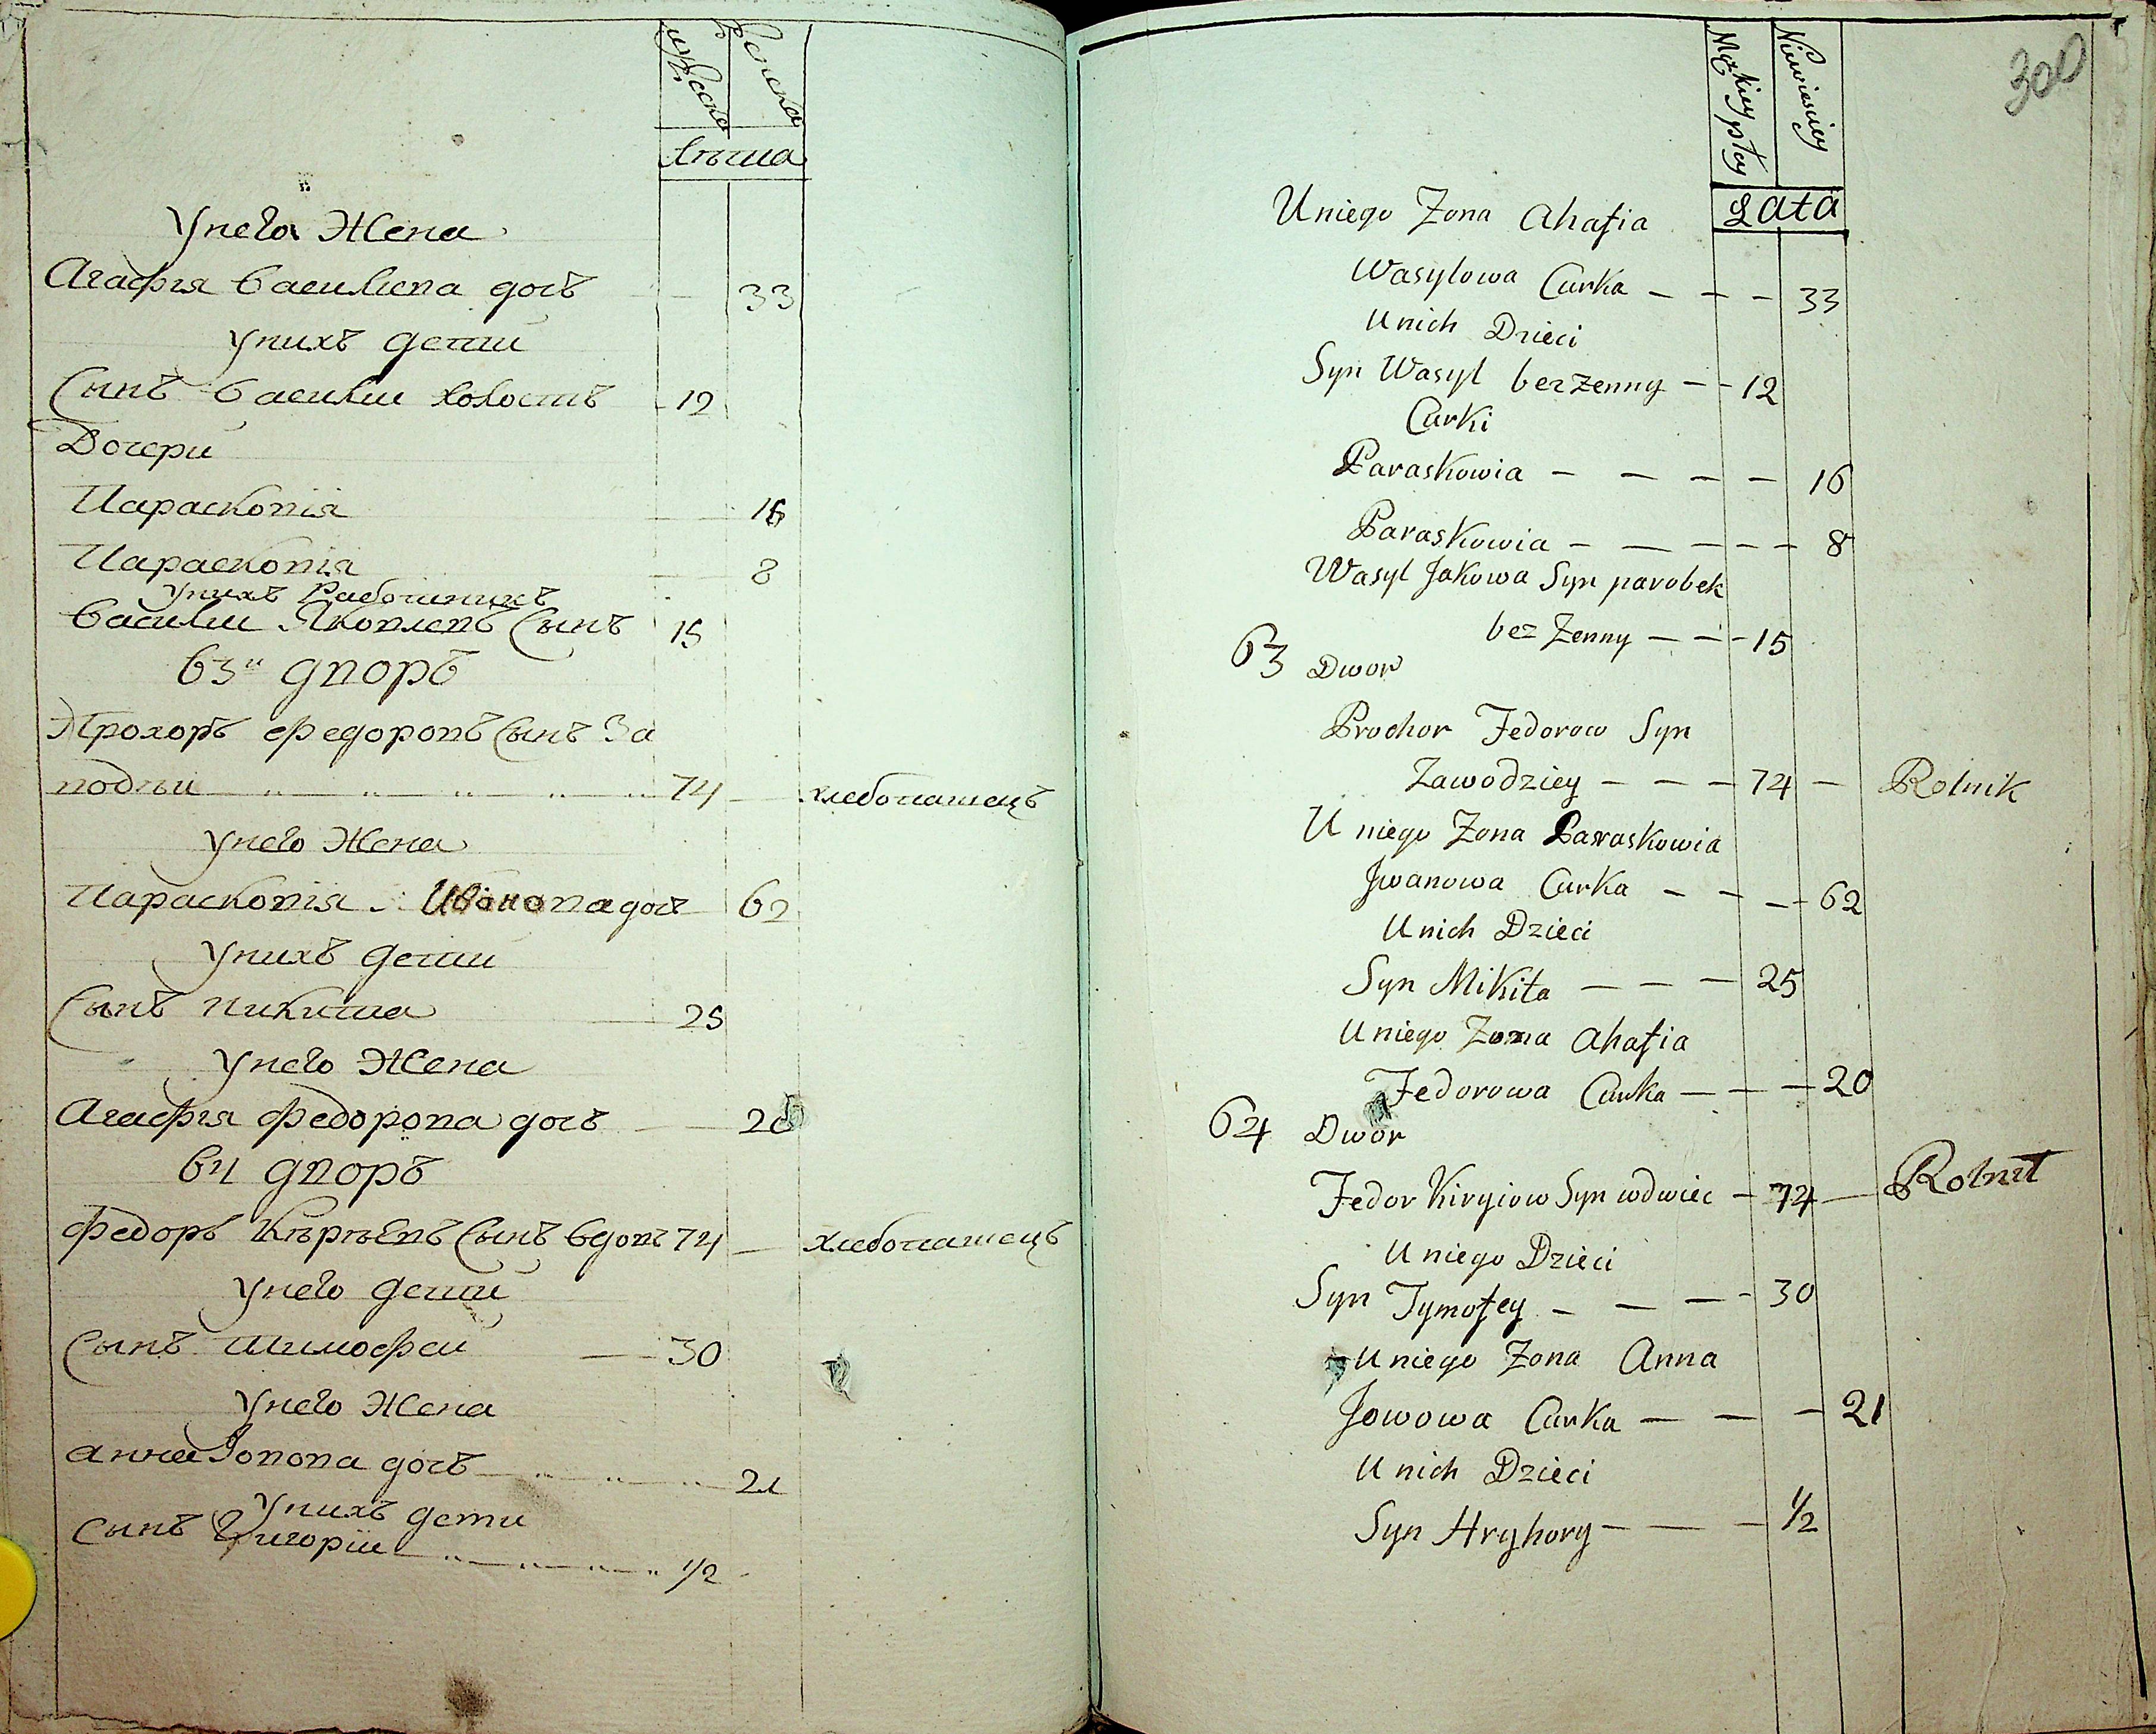 мужеска
женска
лѣта
У него Жена
Агафия Василиева дочь 33
У них детей
Сынъ Василий холостъ 12
Дочери
Парасковия 16
Парасковия 8
У нихъ Работникъ
Василий Яковлевъ Сынъ 15
63й дворъ
Прохоръ Федоровъ Сынъ За
водчи 74 хлебопашецъ
У него Жена
Парасковія Иванова дочь 62
У нихъ детей
Сынъ Никита 25
У него Жена
Агафия Федорова дочь 20
64 дворъ
Федоръ Кѣрѣевъ Сынъ вдовъ 74 хлебопашецъ
У него детей
Сынъ Тимофей 30
У него Жена
Анна Іовова дочь 21
У нихъ дети
Сынъ Григорій 1/2
300
Męzkiey płcy
Niewiesciey
Lata
U niego Zona Ahafia
Wasylowa Curka — — — 33
U nich Dzieci
Syn Wasyl bez zenny — — 12
Curki
Paraskowia — — — — 16
Paraskowia — — — — — 8
Wasyl Jakowa Syn parobek
bez Zenny — — — 15
63 Dwor
Prochor Fedorow Syn
Zawodziey — — — 74 — Rolnik
U niego Zona Paraskowia
Jwanowa Curka — — — — 62
U nich Dzieci
Syn Mikita — — — 25
U niego Zona Ahafia
Fedorowa Curka — — — 20
64 Dwor
Fedor Kiryiow Syn wdwiec — 74 — Rolnik
U niego Dzieci
Syn Tymofey — — — - 30
U niego Zona Anna
Jowowa Curka — — — 21
U nich Dzieci
Syn Hryhory — — — 1/2